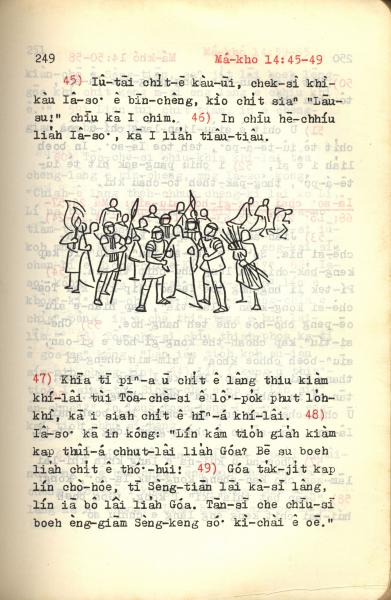 249 Má-kho 14:45-49
45) Iû-tāi chi̍t-ē kàu-ūi, chek-sî khì-
kàu Iâ-so͘ ê bīn-chêng, kìo chi̍t siaⁿ "Lāu-
su!" chīu kā I chim. 46) In chīu hē-chhíu
lia̍h Iâ-so͘, kā I lia̍h tiâu-tiâu.
47) Khīa tī piⁿ-a ū chi̍t ê lâng thiu kiàm
khí-lâi tùi Tōa-chè-si ê lô͘-po̍k phut lo̍h-
khì, kā i siah chi̍t ê hīⁿ-á khí-lâi. 48)
Iâ-so͘ kā in kóng: "Lín kám tio̍h gia̍h kiàm
kap thûi-á chhut-lâi lia̍h Góa? Bē su boeh
lia̍h chi̍t ê thó͘-húi! 49) Góa ta̍k-ji̍t kap
lín chò-hóe, tī Sèng-tiān lāi kà-sī lâng,
lín iā bô lâi lia̍h Góa. Tān-sī che chīu-sī
boeh èng-giam Sèng-keng só͘ kì-chài ê oē."